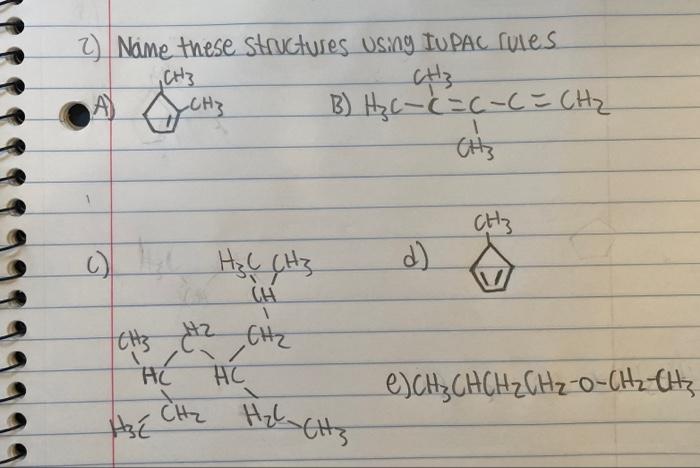 2) Name these structures using IUPAC rules
CH3
A) CH3
CH3
B) H3C-C=C-C=CH2
CH3
C)
H3C CH3
CH
CH3 H2 C CH2
HC HC
H3C CH2 H2C CH3
d)
CH3
e) CH3CHCH2CH2-O-CH2-CH3